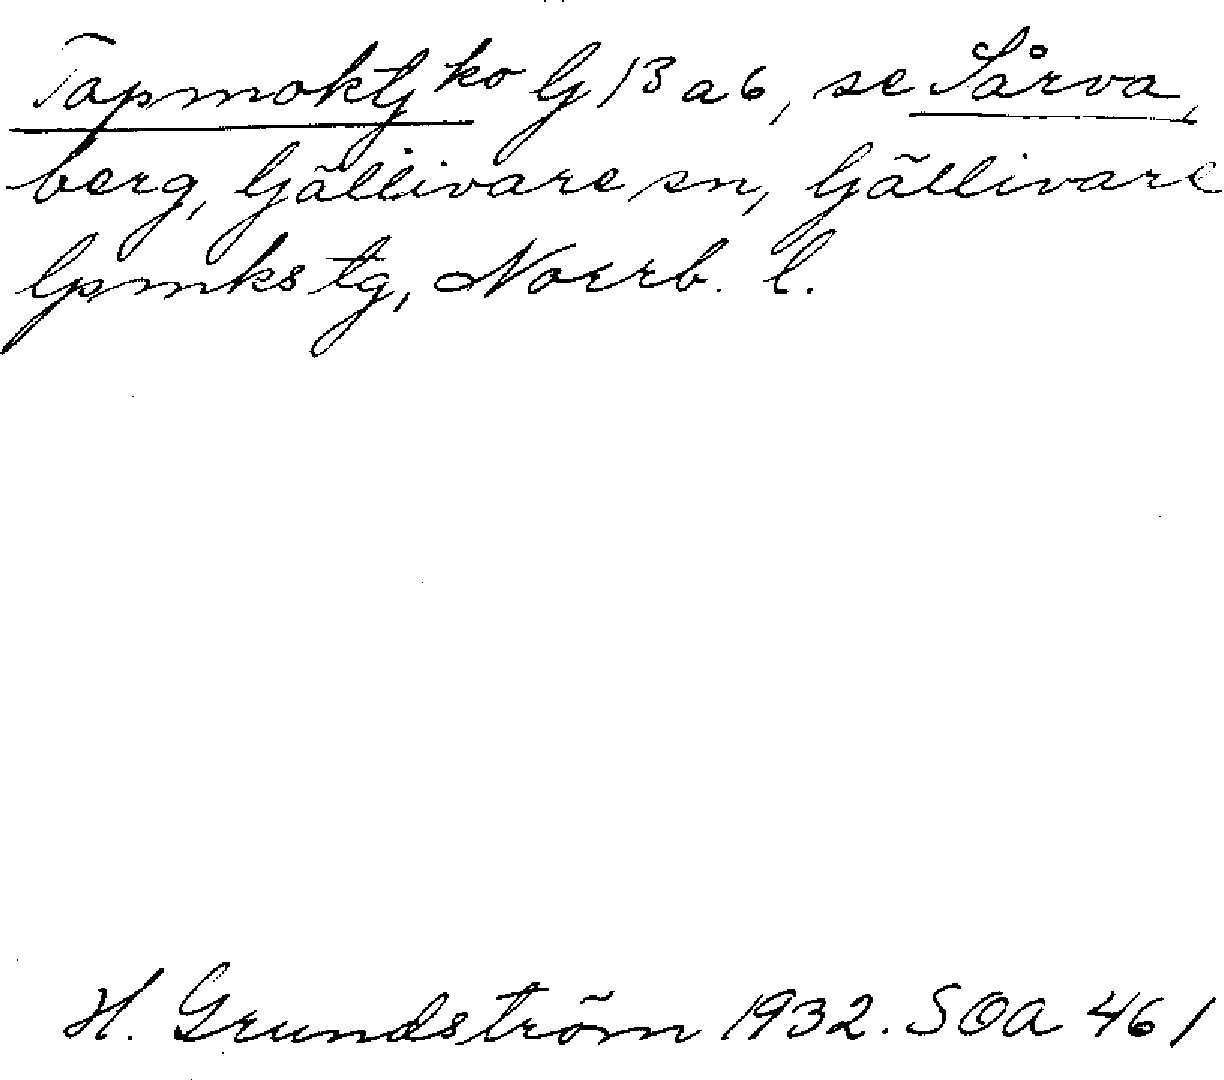 Tapmoktj ko G 13 a 6, se Sårva,
berg, Gällivare sn, Gällivare
lpmks tg, Norrb. l.
H. Grundström 1932. SOA 461